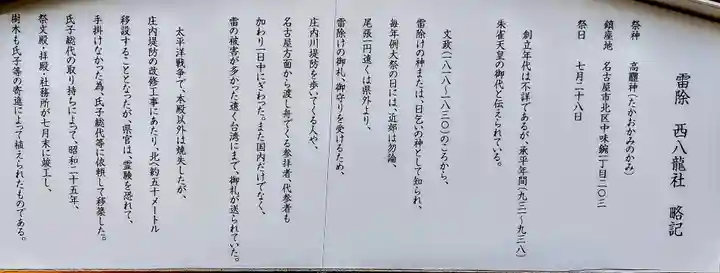 雷除　西八龍社　略記
祭神　高龗神（たかおかみのかみ）
鎮座地　名古屋市北区中味鋺一丁目二〇三
祭日　七月二十八日
創立年代は不詳であるが、承平年間（九三一〜九三八）
朱雀天皇の御代と伝えられている。
文政（一八一八〜一八三〇）のころから、
雷除けの神または、日乞いの神として知られ、
毎年例大祭の日には、近郊は勿論、
尾張一円遠くは県外より、
雷除けの御札、御守りを受けるため、
庄内川堤防を歩いてくる人や、
名古屋方面から渡し舟でくる参拝者、代参者も
加わり一日中にぎわった。また国内だけでなく、
雷の被害が多かった遠く台湾にまで、御札が送られていた。
太平洋戦争で、本殿以外は焼失したが、
庄内堤防の改修工事にあたり、北へ約五十メートル
移設することとなったが、県官は、霊験を恐れて、
手掛けなかった為、氏子総代等に依頼して移築した。
氏子総代の取り持ちによって、昭和二十五年、
祭文殿・拝殿・社務所が七月末に竣工し、
樹木も氏子等の寄進によって植えられたものである。